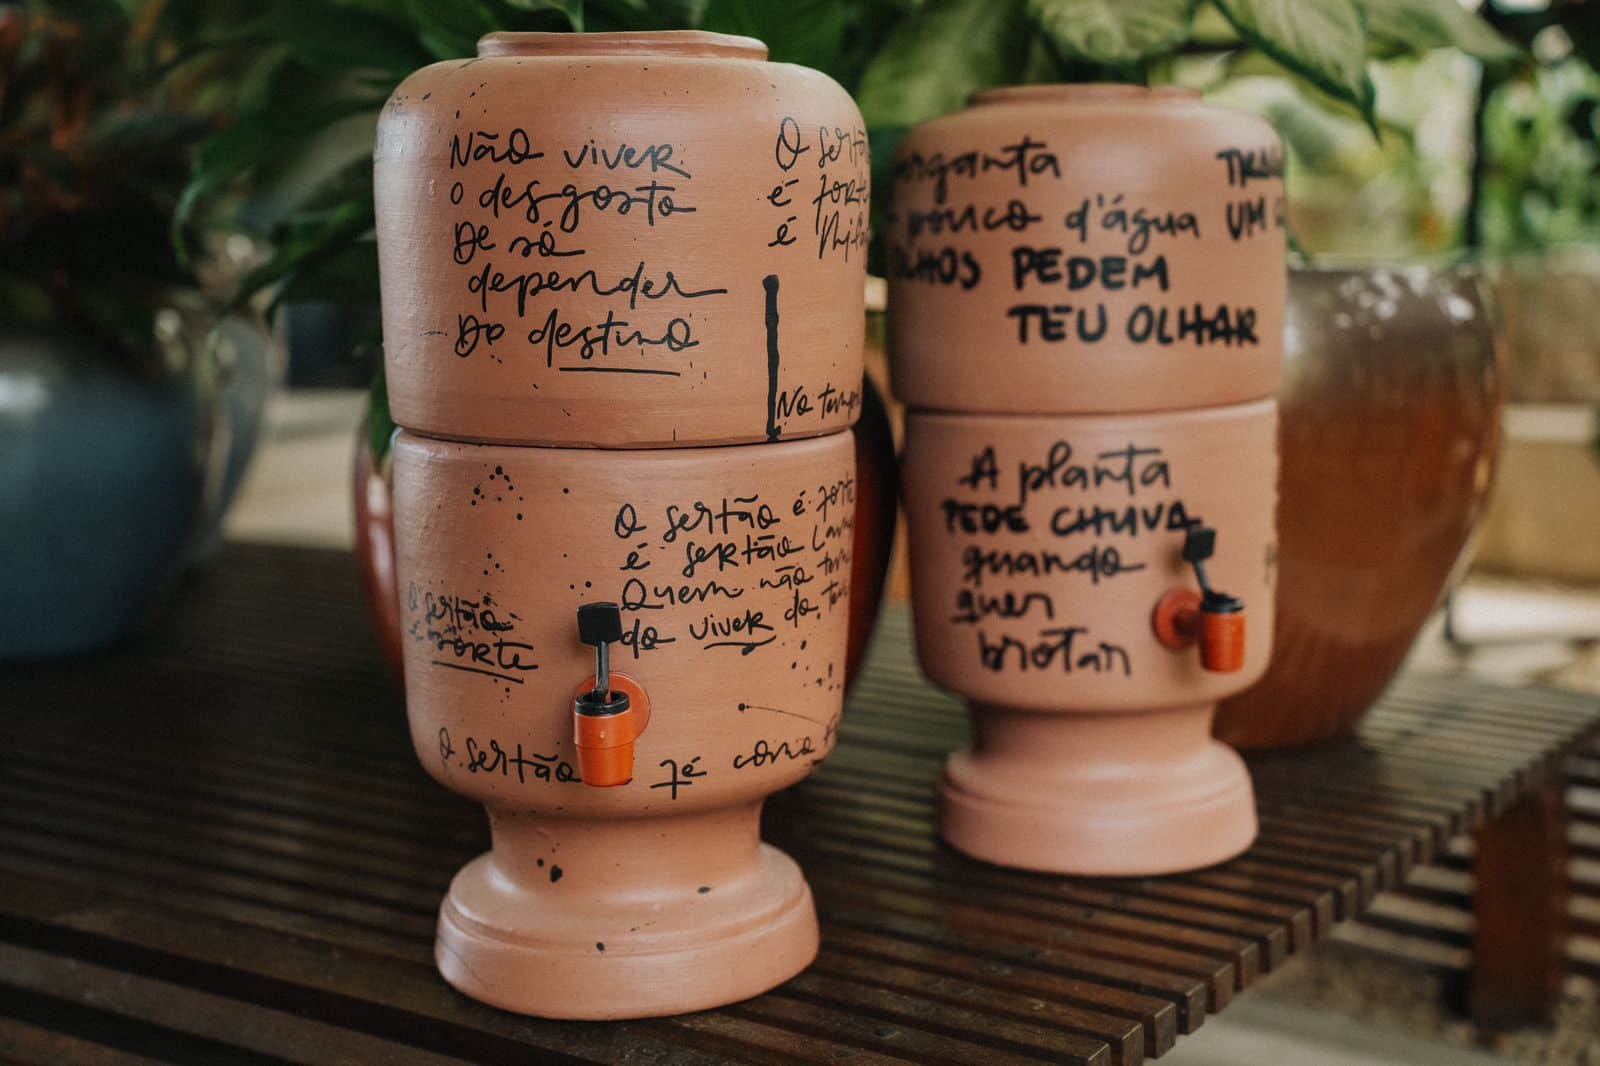 Não viver
o desgosto
De só
depender
Do destino
O sertão
é forte
é
No
O sertão é forte
é sertão
Quem não tem
do viver do
O sertão
é forte
O sertão
fé como
d'água
PEDEM
TEU OLHAR
UM
A planta
PEDE CHUVA
quando
quer
brotar